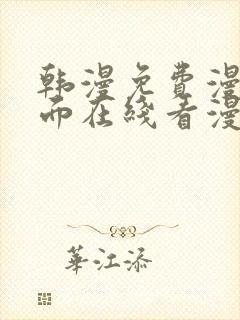 韩漫免费漫
而在线看漫
華江添